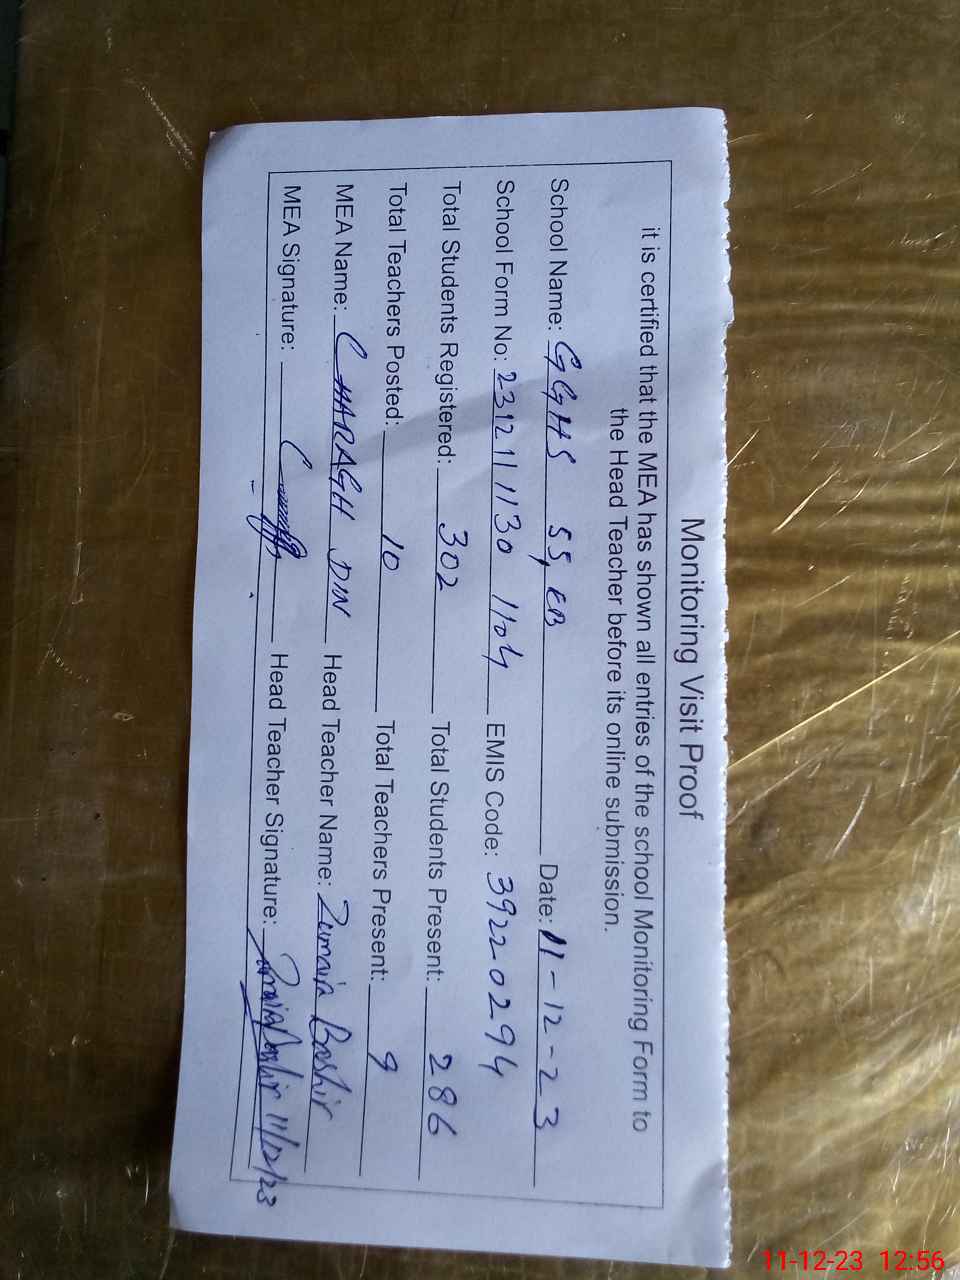 Monitoring Visit Proof
it is certified that the MEA has shown all entries of the school Monitoring Form to
the Head Teacher before its online submission.
School Name: GGHS 55, EB Date: 11-12-23
School Form No: 231211130 1104 EMIS Code: 39220294
Total Students Registered: 302 Total Students Present: 286
Total Teachers Posted: 10 Total Teachers Present: 9
MEA Name: CHARAGH DIN Head Teacher Name: Zumaira Bashir
MEA Signature: Head Teacher Signature: 11/12/23
11-12-23 12:56